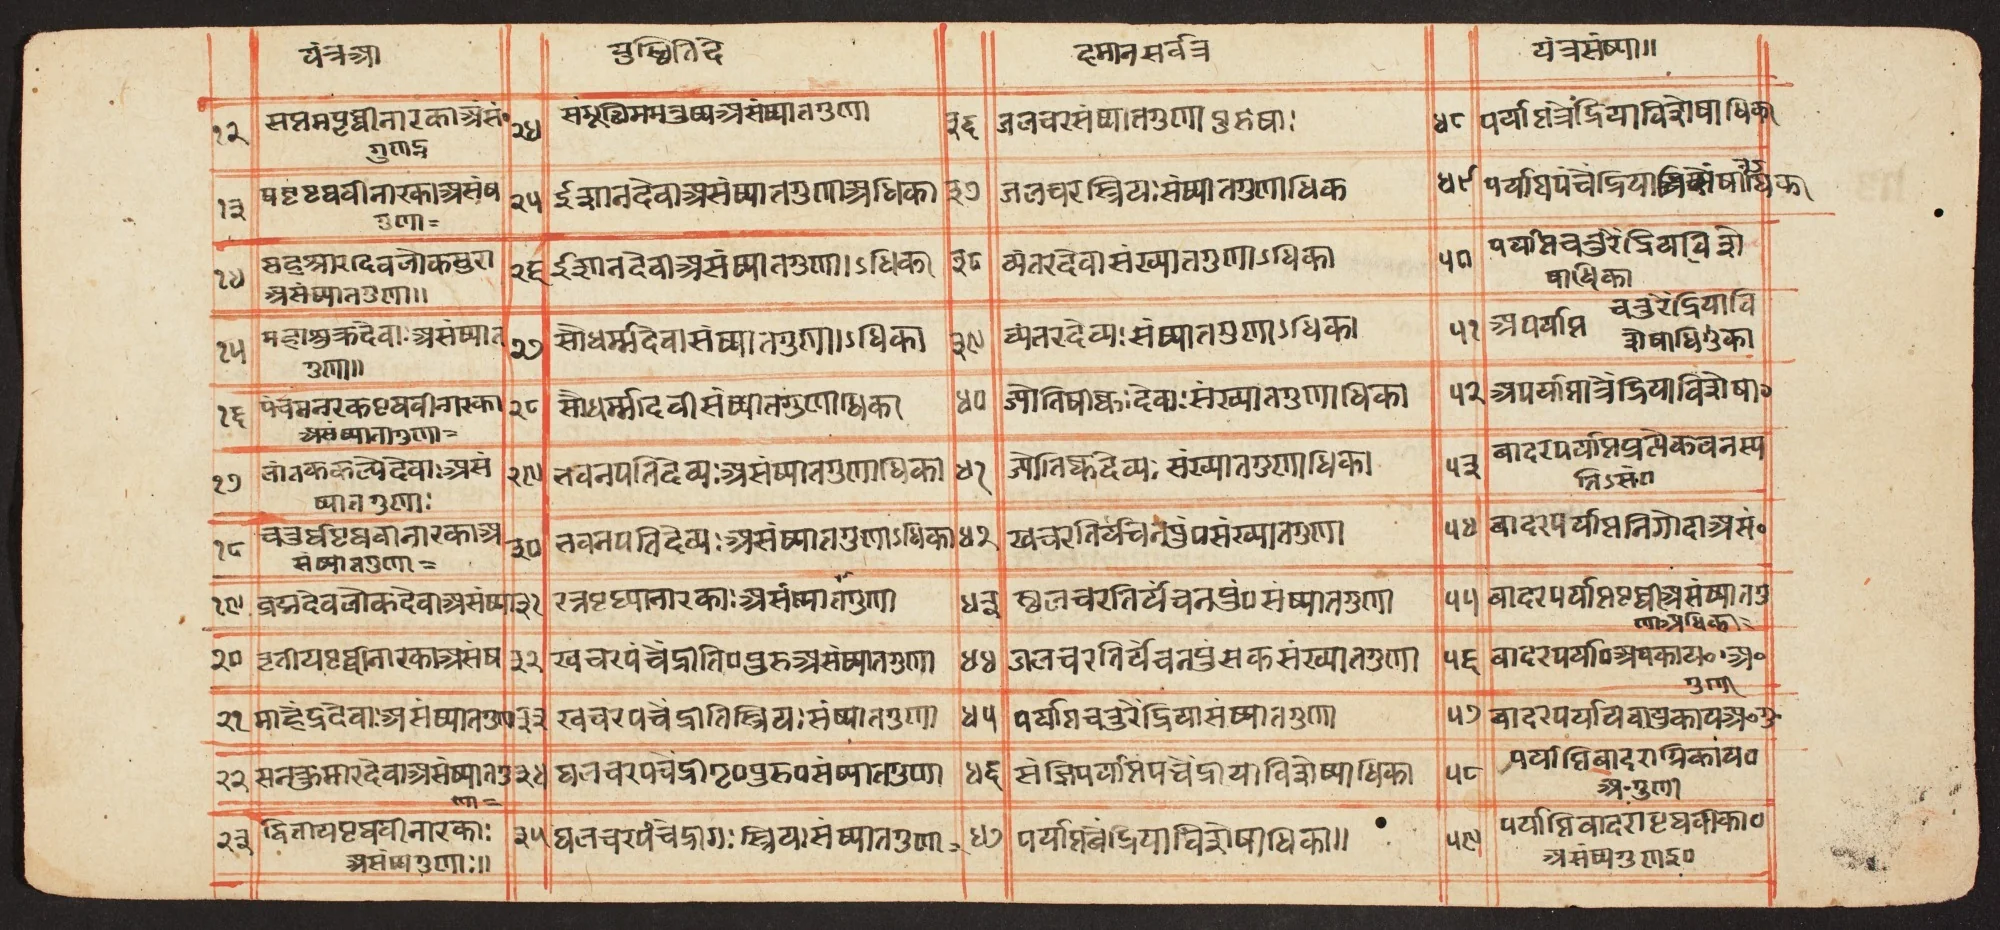 यंत्रआ युस्थितिदे दमानसर्वत्र यंत्रसंख्या॥
१२ सप्तमपृथ्वीनारकाअसं॰
गुणाइ
१३ षष्टपृथवीनारकाअसंष
गुणा=
१४ सहश्रारदेवलोकसुरा
असंष्यातगुणा॥
१५ महाशुक्रदेवाःअसंष्यात
गुणा॥
१६ पंचमनरकपृथवीनारका
असंष्यातागुणा=
१७ लांतककल्पेदेवाःअसं
ष्यातगुणाः
१८ चतुर्थपृथवीनारकाअ
संष्यातगुणा=
१९ ब्रह्मदेवलोकदेवाअसंष्या
२० तृतीयपृथ्वीनारकाअसंष
२१ माहेंद्रदेवाःअसंष्यातगुण
२२ सनत्कुमारदेवाअसंष्यातगु
णा=
२३ द्वितीयपृथवीनारकाः
असंष्यगुणाः॥
२४ संमूर्छिममनुष्यअसंष्यातगुणा
२५ ईशानदेवाअसंष्यातगुणाअधिका
२६ ईशानदेवाअसंष्यातगुणा।ऽधिका
२७ सौधर्म्मदेवासंष्यातगुणा।ऽधिका
२८ सौधर्म्मादेवीसंष्यातगुणाधिका
२९ भवनपतिदेव्यःअसंष्यातगुणाधिका
३० भवनपतिदेव्यःअसंष्यातगुणाऽधिका
३१ रत्नपृथ्यानारकाःअसंष्यातगुणा
३२ खचरपंचेंद्रीति०पुरुअसंष्यातगुणा
३३ खचरपचेंद्रीतिस्त्रियःसंष्यातगुणा
३४ थलचरपचेंद्रीगृ०पुरु०संष्यातगुणा
३५ थलचरपंचेंद्रीगःस्त्रियःसंष्यातगुणा=
३६ जलचरसंष्यातगुणापुरुषाः
३७ जलचरस्त्रियःसंष्यातगुणाधिक
३८ व्यंतरदेवासंख्यातगुणाऽधिका
३९ व्यंतरदेव्यःसंष्यातगुणाऽधिका
४० ज्योतिषीष्कःदेवाःसंख्यातगुणाधिका
४१ ज्योतिर्ष्कदेव्यःसंख्यातगुणाधिका
४२ खचरतिर्यंचनपुंपसंख्यातगुणा
४३ थलचरतिर्यंचनपुं०संष्यातगुणा
४४ जलचरतिर्यंचनपुंसकसंख्यातगुणा
४५ पर्याप्तचतुरेंद्रियासंष्यातगुणा
४६ संज्ञिपर्याप्तिपचेंद्रीयाविशेष्याधिका
४७ पर्याप्तबेंद्रियाविशेषाधिका॥
४८ पर्याप्तत्रेंद्रियाविशेषाधिका
४९ पर्याप्तपंचेंद्रिया षाधिका
५० पर्याप्तचतुरेंद्रियविशे
षाधिका
५१ अपर्याप्त चतुरेंद्रियावि
शेषाधिगुका
५२ अपर्याप्तात्रेंद्रियाविशेषा॰
५३ बादरपर्याप्तप्रत्येकवनस्प
तिऽसं०
५४ बादरपर्याप्तनिगोदाअसं॰
५५ बादरपर्याप्तपृथ्वीअसंष्यातगु
णाअधिका=
५६ बादरपर्या०अपकाय॰अ॰
गुणा
५७ बादरपर्याप्तवायुकायअ॰गु
५८ पर्याप्तिबादराग्निकाय०
अ-गुणा
५९ पर्याप्तिबादरापृथवीका०
असंष्यगुणाइ०